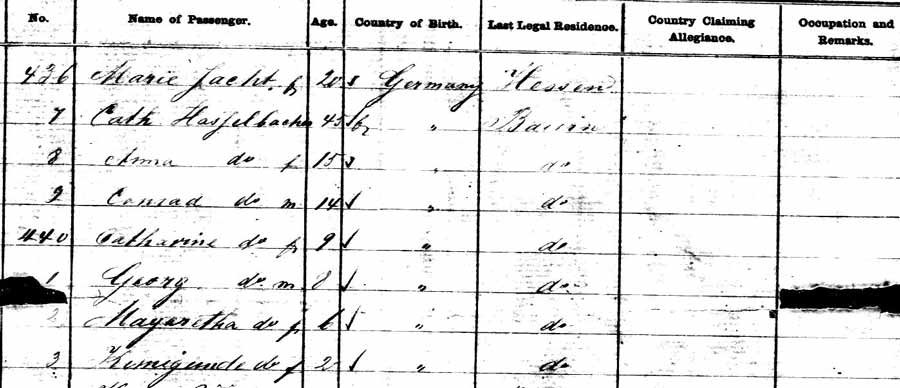 No. Name of Passenger. Age. Country of Birth. Last Legal Residence. Country Claiming Allegiance. Occupation and Remarks.
436 Marie Jacht. f 20 s Germany Hessen
7 Cath Hasselbacher 45 " Baiern
8 Anna do f 15 s " do
9 Conrad do m 14 " do
440 Catharine do f 9 " do
1 Georg do m 8 " do
2 Magaretha do f 6 " do
3 Kunigunde do f 2 " do